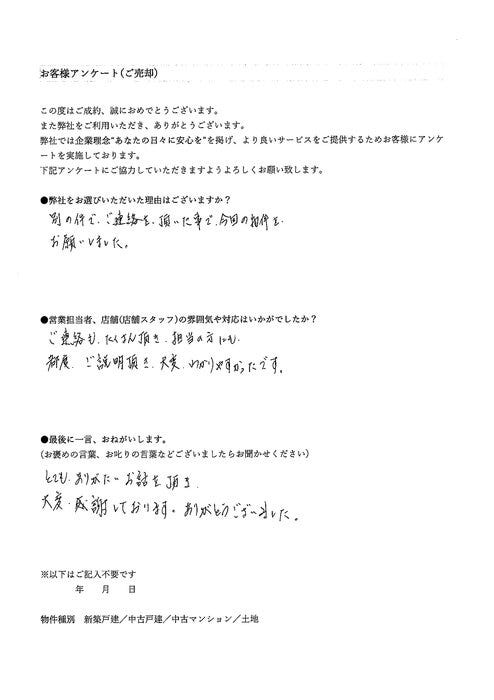 お客様アンケート(ご売却)
この度はご成約、誠におめでとうございます。
また弊社をご利用いただき、ありがとうございます。
弊社では企業理念"あなたの日々に安心を"を掲げ、より良いサービスをご提供するためお客様にアンケ
ートを実施しております。
下記アンケートにご協力していただきますようよろしくお願い致します。
●弊社をお選びいただいた理由はございますか？
別の件で、ご連絡を、頂いた事で、今回の物件を、
お願いしました。
●営業担当者、店舗(店舗スタッフ)の雰囲気や対応はいかがでしたか？
ご連絡も、たくさん頂き、担当の方にも、
都度、ご説明頂き、大変、わかりやすかったです。
●最後に一言、おねがいします。
(お褒めの言葉、お叱りの言葉などございましたらお聞かせください)
とても、ありがたいお話を頂き、
大変、感謝しております。ありがとうございました。
※以下はご記入不要です
年　月　日
物件種別　新築戸建／中古戸建／中古マンション／土地